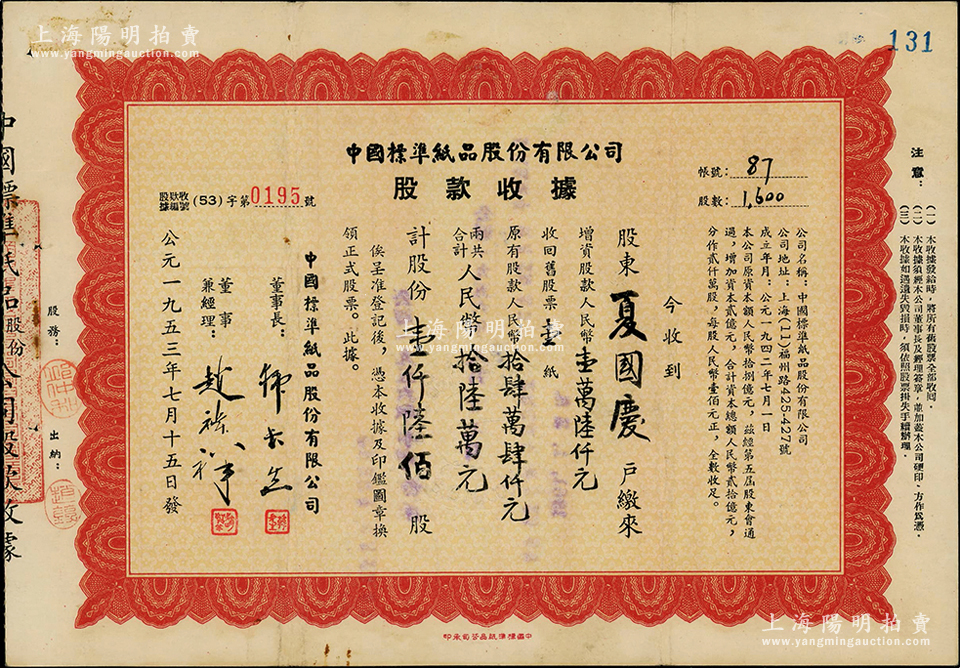 上海陽明拍賣
www.yangmingauction.com
131
中國標準紙品股份有限公司
股款收據
股款收據編號(53)字第0195號
帳號：87
股數：1,600
注意：
(一) 本收據發給時，將所有舊股票全部收回．
(二) 本收據須經本公司董事長及經理簽章，並加蓋本公司硬印，方作爲憑．
(三) 本收據如遇遺失毀損時，須依照股票掛失手續辦理．
公司名稱：中國標準紙品股份有限公司
公司地址：上海(11)福州路425-427號
成立年月：公元一九四二年七月一日
本公司原資本額人民幣拾捌億元，茲經第五屆股東會通
過，增加資本貳億元，合計資本總額人民幣貳拾億元，
分作貳仟萬股，每股人民幣壹佰元正，全數收足。
今收到
股東 夏國慶 戶繳來
增資股款人民幣壹萬陸仟元
收回舊股票壹紙
原有股款人民幣拾肆萬肆仟元
兩共合計人民幣拾陸萬元
計股份壹仟陸佰股
俟呈准登記後，憑本收據及印鑑圖章換
領正式股票。此據。
中國標準紙品股份有限公司
董事長：
董事兼經理：
公元一九五三年七月十五日發
股務：
出納：
中國標準紙品股份公司股款收據
中國標準紙品公司承印
上海陽明拍賣
www.yangmingauction.com
上海陽明拍賣
www.yangmingauction.com